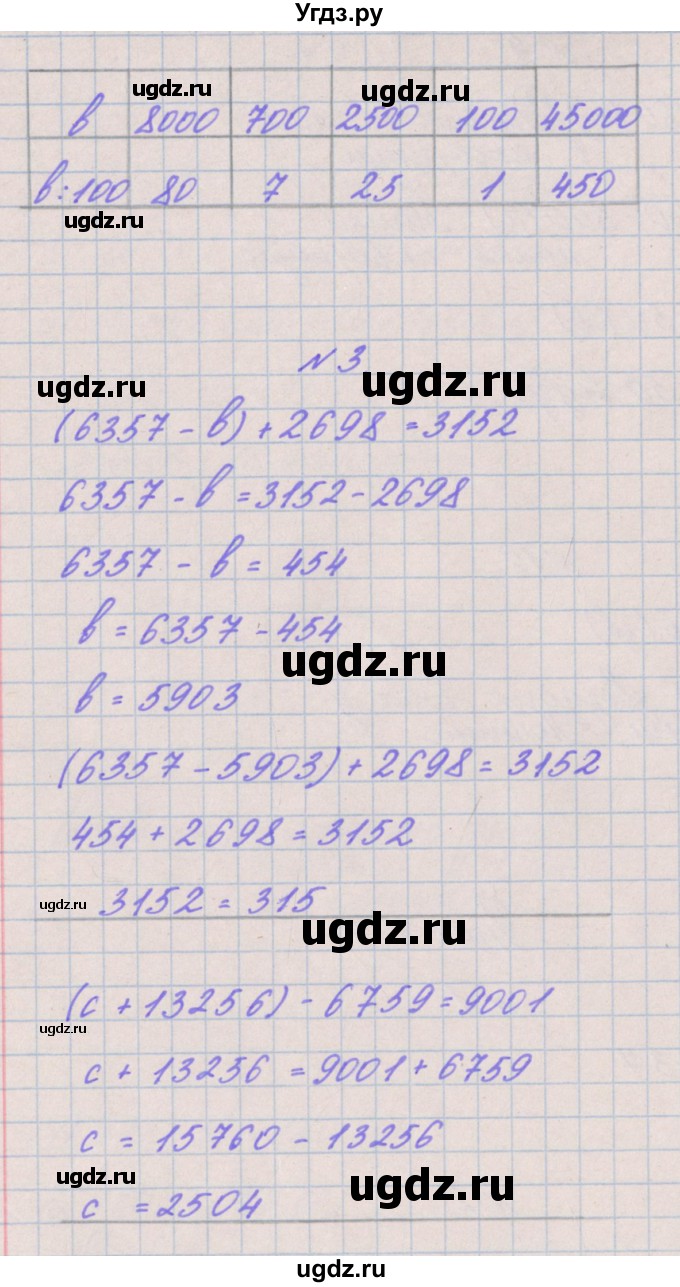 Угдз.ру
ugdz.ru ugdz.ru
в 8000 700 2500 100 45000
в:100 80 7 25 1 450
ugdz.ru
N 3
ugdz.ru ugdz.ru
(6357 - в) + 2698 = 3152
6357 - в = 3152 - 2698
6357 - в = 454
в = 6357 - 454
ugdz.ru
в = 5903
(6357 - 5903) + 2698 = 3152
454 + 2698 = 3152
ugdz.ru 3152 = 315
ugdz.ru
(с + 13256) - 6759 = 9001
ugdz.ru
с + 13256 = 9001 + 6759
с = 15760 - 13256
ugdz.ru ugdz.ru
с = 2504
ugdz.ru